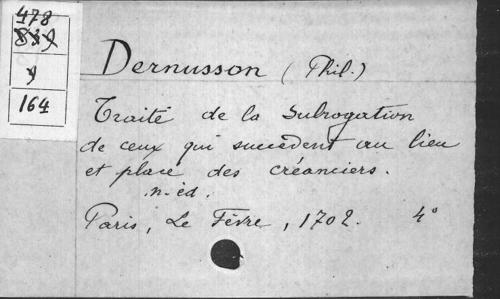 478
839
164
Dernusson (Phil.)
Traité de la Subrogation
de ceux qui succèdent au lieu
et place des créanciers.
n. ed.
Paris, Le Fèvre, 1702. 4°